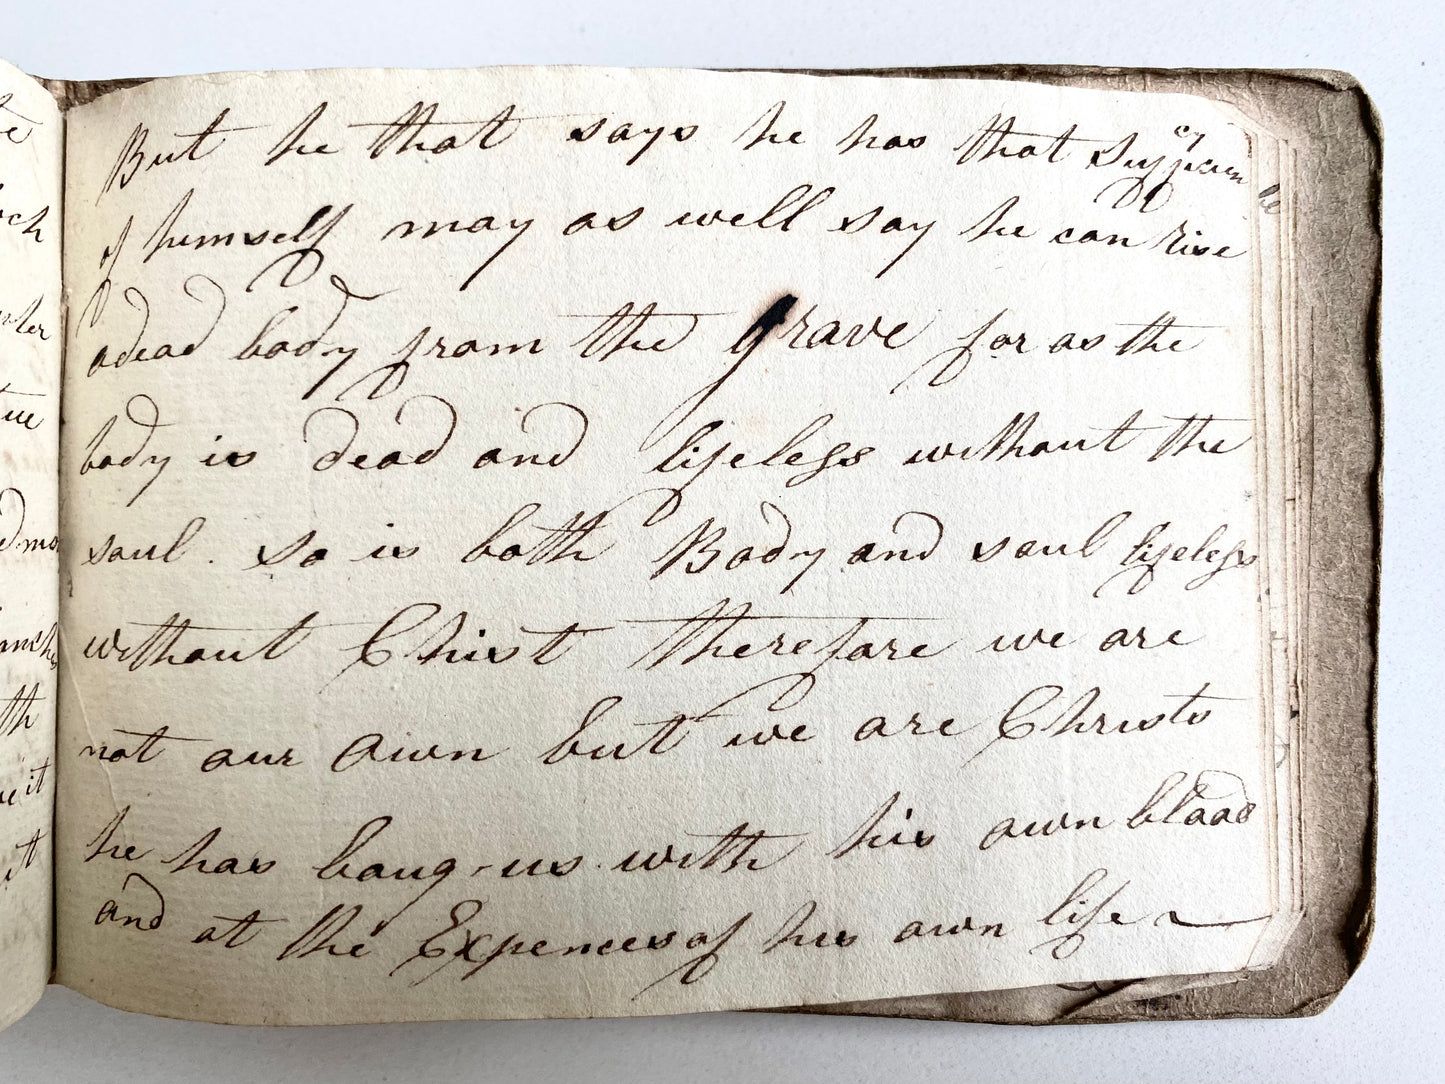 But he that says he has that
of himself may as well say he can rise
adead body from the grave for as the
body is dead and lifeless without the
soul. So is both Body and soul lifeless
without Christ therefore we are
not our own but we are Christs
he has baug-us with his own blood
and at the Expences of his own life